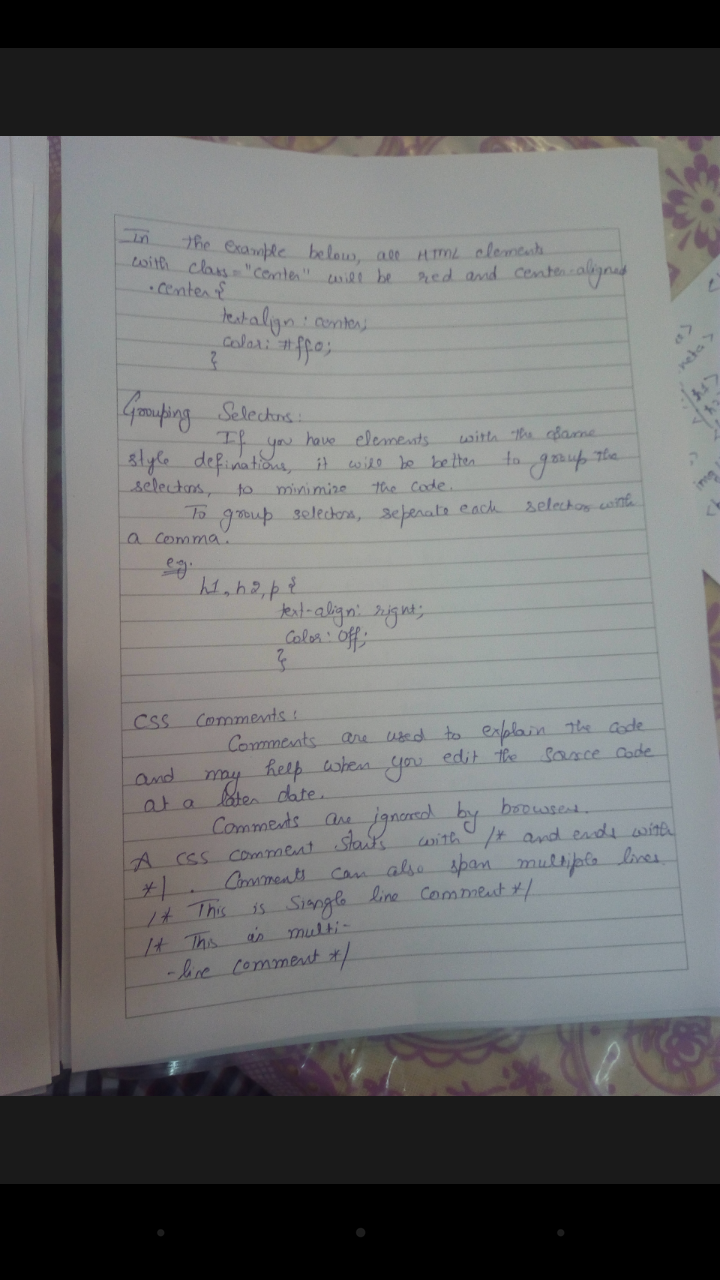 In the example below, all HTML elements
with class="center" will be red and center-aligned
.center {
text-align : center;
color: #ff0;
}
Grouping Selectors:
If you have elements with the same
style definations, it will be better to group the
selectors, to minimize the code.
To group selectors, seperate each selector with
a comma.
eg.
h1, h2, p {
text-align: right;
Color: Off;
}
CSS Comments:
Comments are used to explain the code
and may help when you edit the source code
at a later date.
Comments are ignored by browsers.
A CSS comment starts with /* and ends with
*/. Comments can also span multiple lines.
/* This is Siangle line Comment */
/* This is multi-
-line comment */